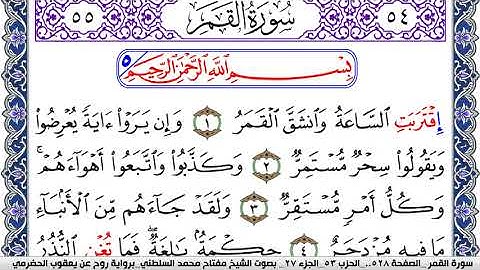 ٥٥ سُورَةُ القَمَرِ ٥٤
بِسْمِ اللَّهِ الرَّحْمَٰنِ الرَّحِيمِ ٥
اِقْتَرَبَتِ السَّاعَةُ وَانْشَقَّ الْقَمَرُ ١ وَإِن يَرَوْاْ ءَايَةً يُعْرِضُواْ
وَيَقُولُواْ سِحْرٌ مُّسْتَمِرٌّ ٢ وَكَذَّبُواْ وَاتَّبَعُواْ أَهْوَاءَهُمْ ۚ
وَكُلُّ أَمْرٍ مُّسْتَقِرٌّ ٣ وَلَقَدْ جَاءَهُم مِّنَ الْأَنْبَاءِ
مَا فِيهِ مُزْدَجَرٌ ٤ حِكْمَةٌ بَالِغَةٌ ۖ فَمَا تُغْنِ النُّذُرُ
سورة القمر_ الصفحة ٥٢٨_ الحزب ٥٣_ الجزء ٢٧_ بصوت الشيخ مفتاح محمد السلطني_ برواية روح عن يعقوب الحضرمي